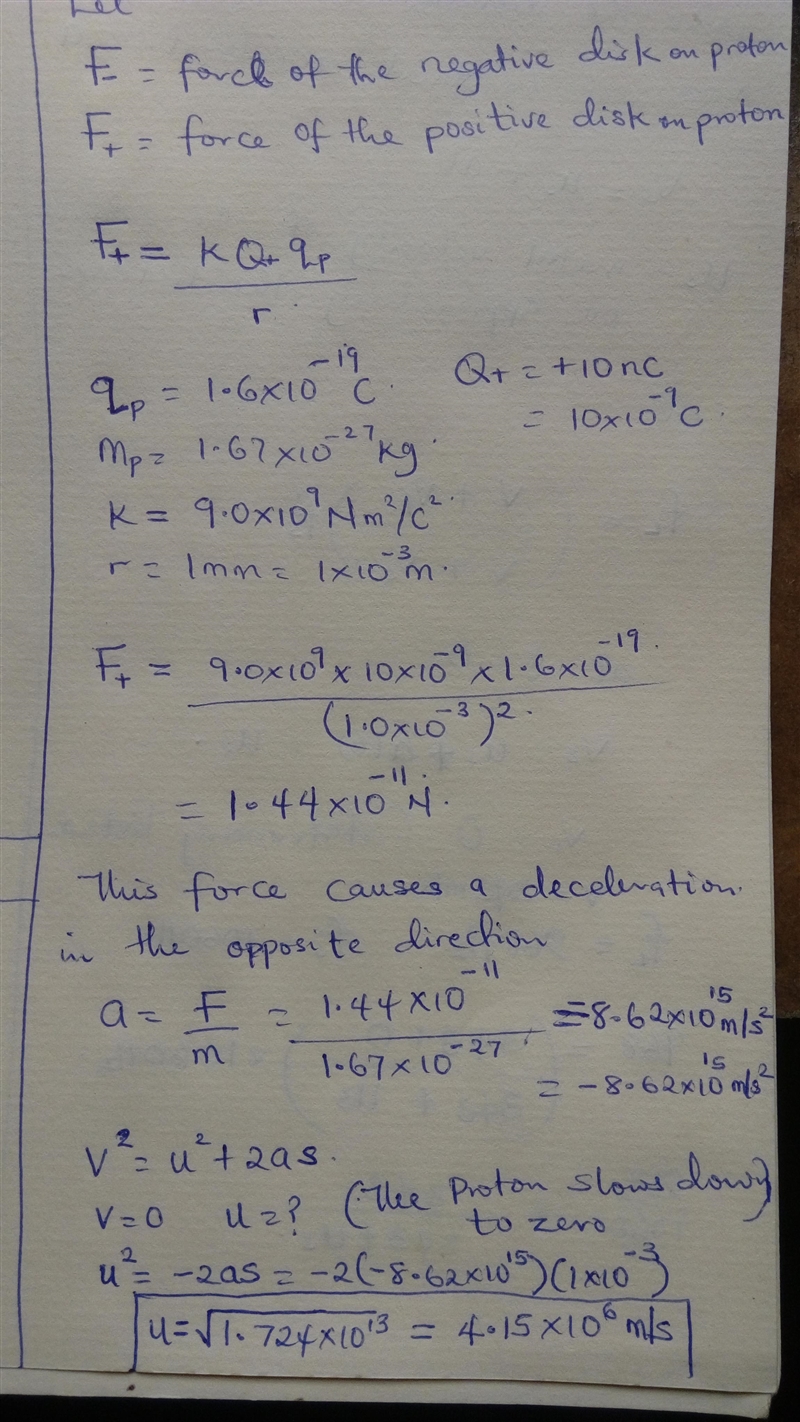 Let
F- = force of the negative disk on proton
F+ = force of the positive disk on proton
F+ = K Q+ qp
r
qp = 1.6×10^-19 C.
Q+ = +10nC
= 10×10^-9 C.
mp = 1.67×10^-27 kg.
K = 9.0×10^9 Nm²/C².
r = 1mm = 1×10^-3 m.
F+ = 9.0×10^9 × 10×10^-9 × 1.6×10^-19.
(1.0×10^-3)².
= 1.44×10^-11 N.
This force causes a deceleration.
in the opposite direction
a = F/m = 1.44×10^-11 / 1.67×10^-27 = -8.62×10^15 m/s²
= -8.62×10^15 m/s²
V² = u² + 2as.
V=0 u=? (The Proton slows down to zero)
u² = -2as = -2(-8.62×10^15)(1×10^-3)
u = √1.724×10^13 = 4.15×10^6 m/s